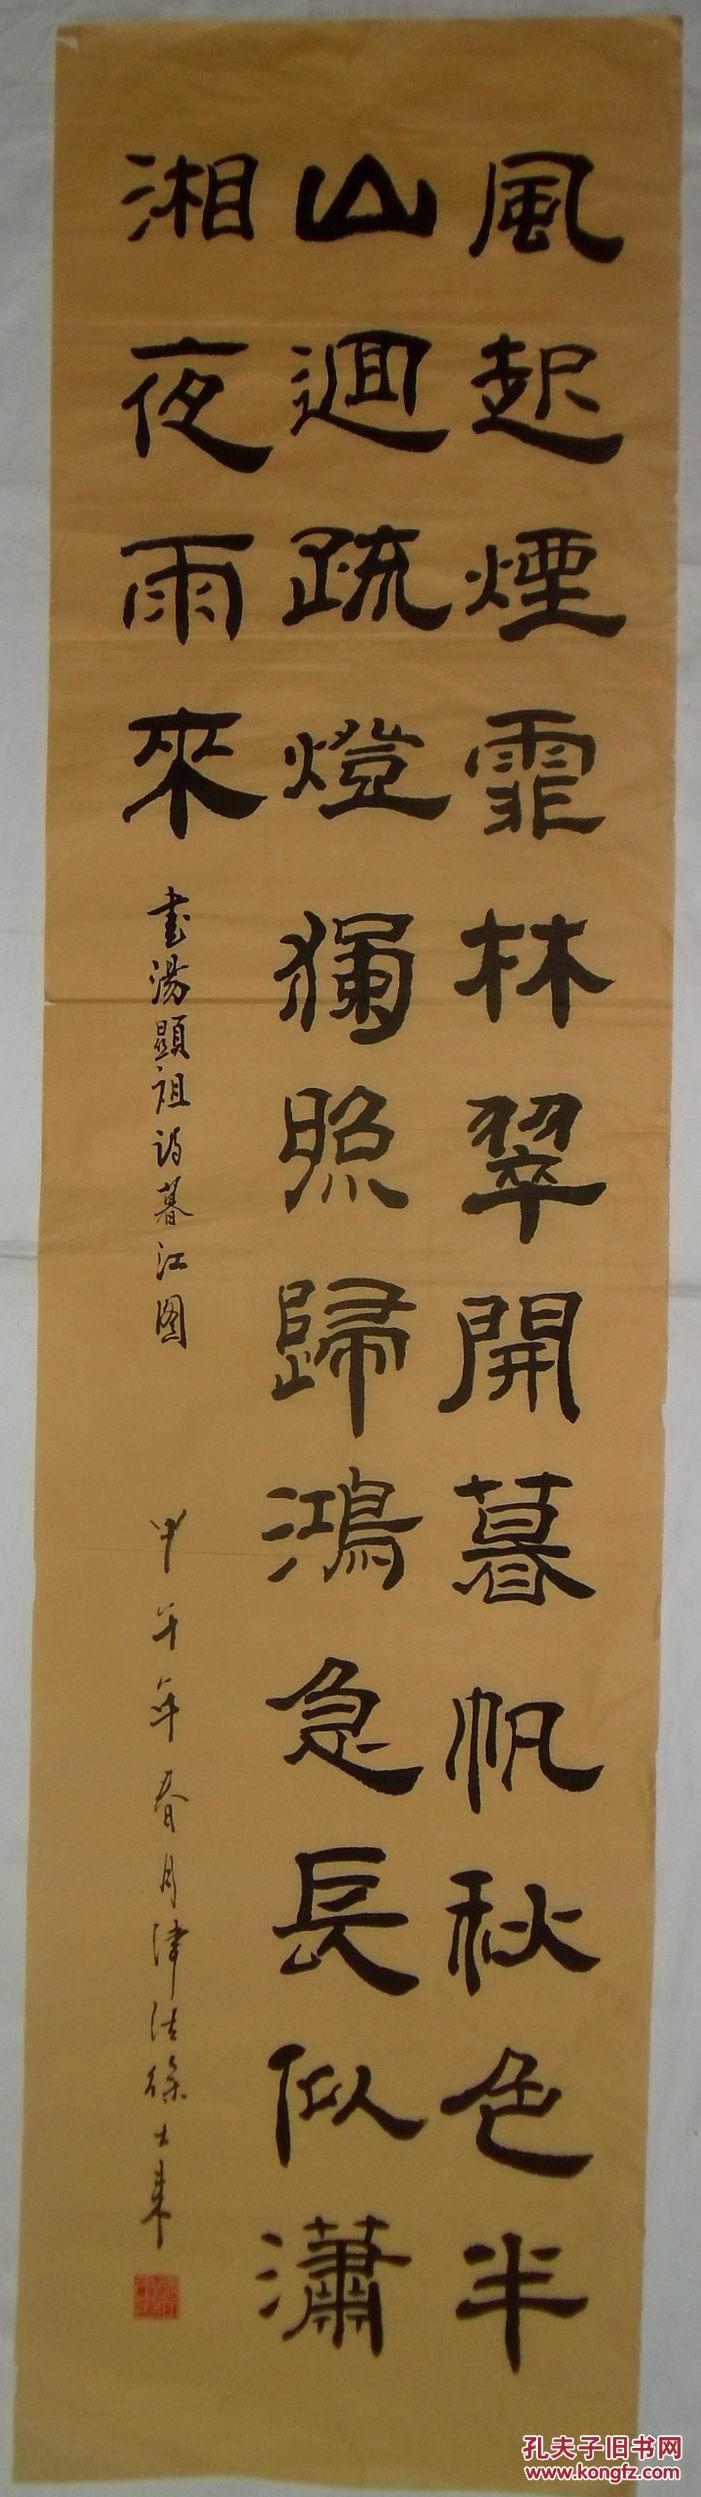 風起煙霏林翠開暮帆秋色半
山迴疏燈獨照歸鴻急長似瀟
湘夜雨來
書湯顯祖詩暮江图
甲午年春月津沽徐士東
孔夫子旧书网
www.kongfz.com